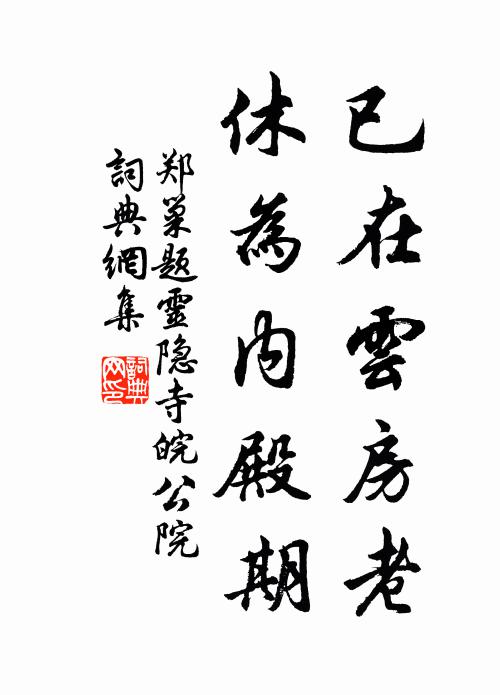 已在雲房老
休為内殿期
郑巢题靈隐寺皖公院
詞典網集
詞典网印